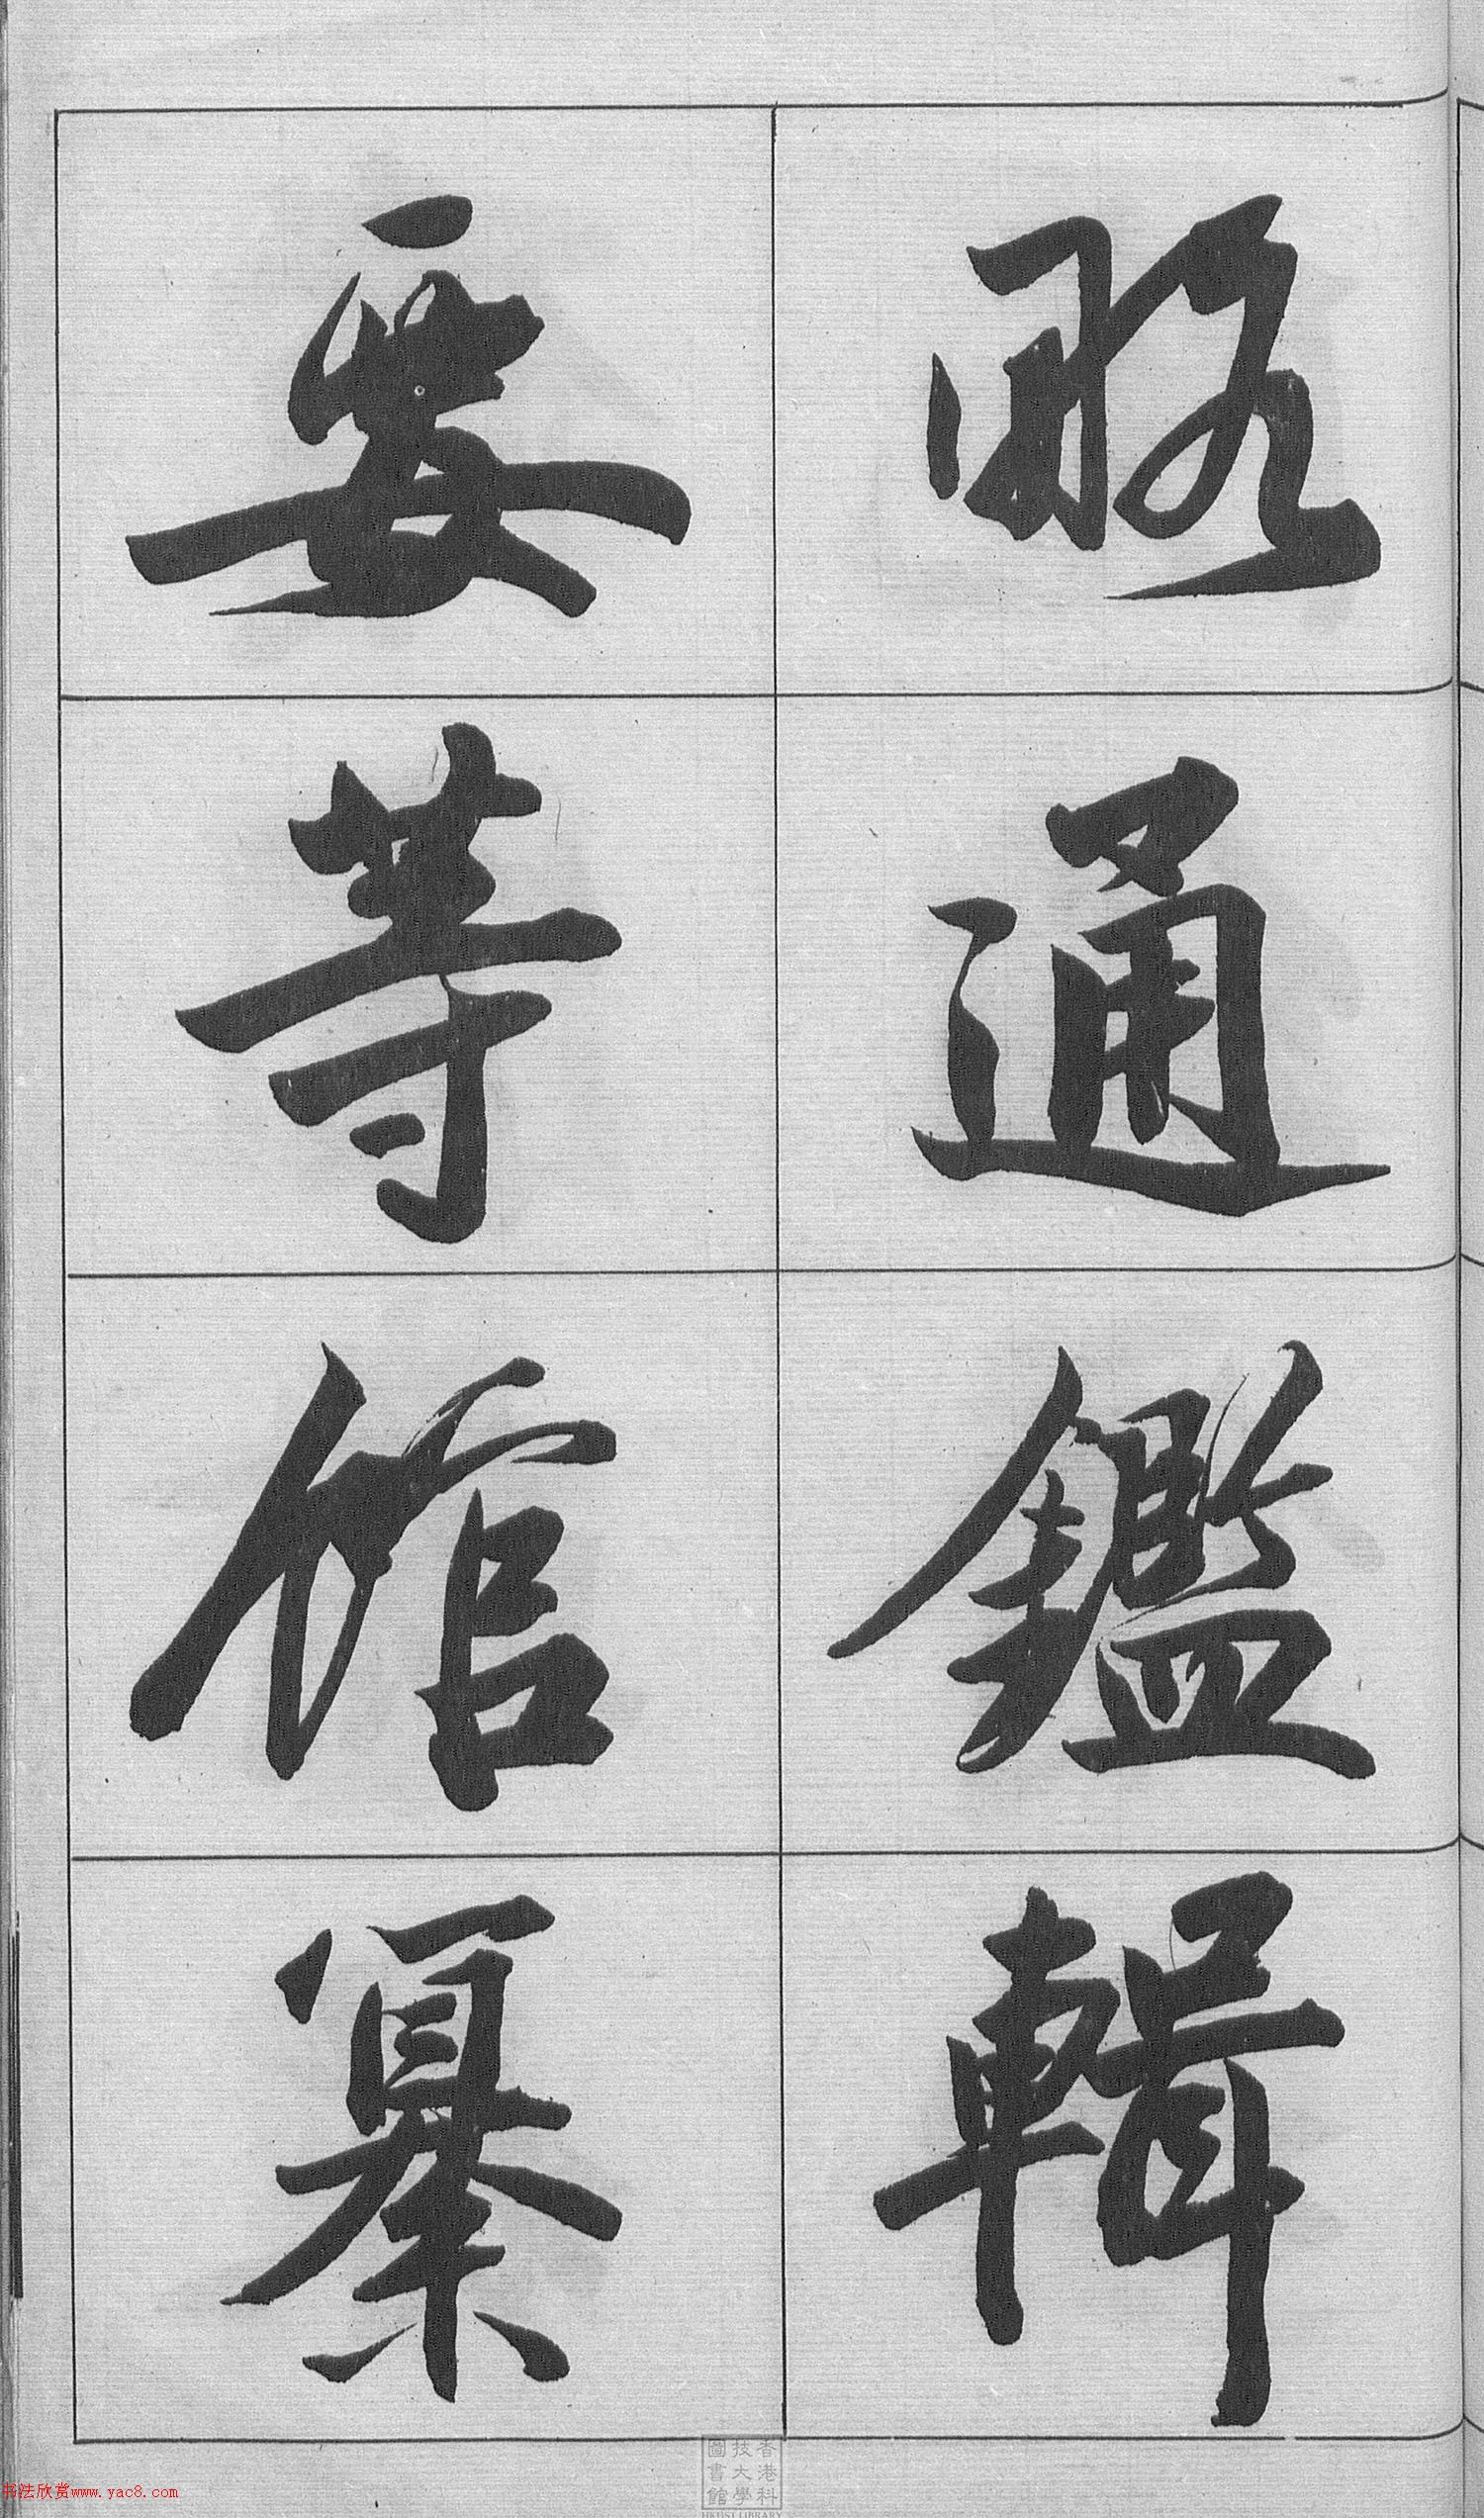 略通鑑輯
要等館纂
香港科
技大學
圖書館
HKUST LIBRARY
书法欣赏www.yac8.com